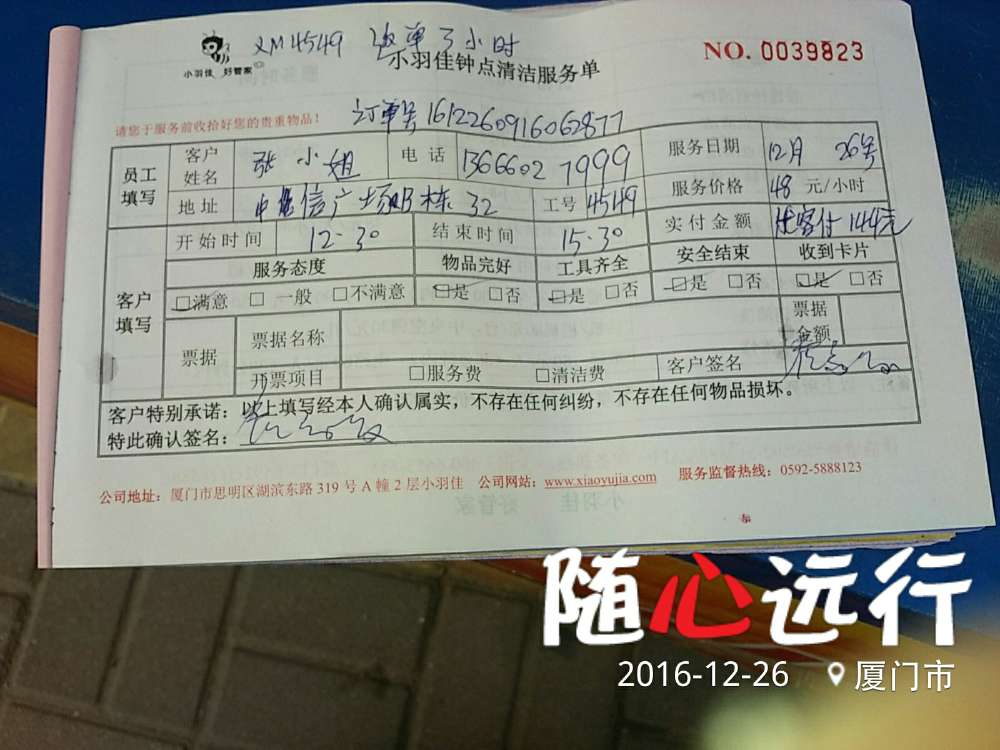 XM4549 派单3小时
小羽佳 好管家
小羽佳钟点清洁服务单
NO. 0039823
请您于服务前收拾好您的贵重物品!
订单号1612260916062877
员工填写 客户姓名 张小姐 电话 13666027999 服务日期 12月 26号
地址 信广场 栋 32 工号 4549 服务价格 48 元/小时
开始时间 12.30 结束时间 15.30 实付金额 客付144元
客户填写 服务态度 物品完好 工具齐全 安全结束 收到卡片
□满意 □一般 □不满意 □是 □否 □是 □否 □是 □否 □是 □否
票据 票据名称 票据金额
开票项目 □服务费 □清洁费 客户签名
客户特别承诺:以上填写经本人确认属实,不存在任何纠纷,不存在任何物品损坏。
特此确认签名:
公司地址:厦门市思明区湖滨东路 319 号 A 幢 2 层小羽佳 公司网站:www.xiaoyujia.com 服务监督热线:0592-5888123
随心远行
2016-12-26 厦门市